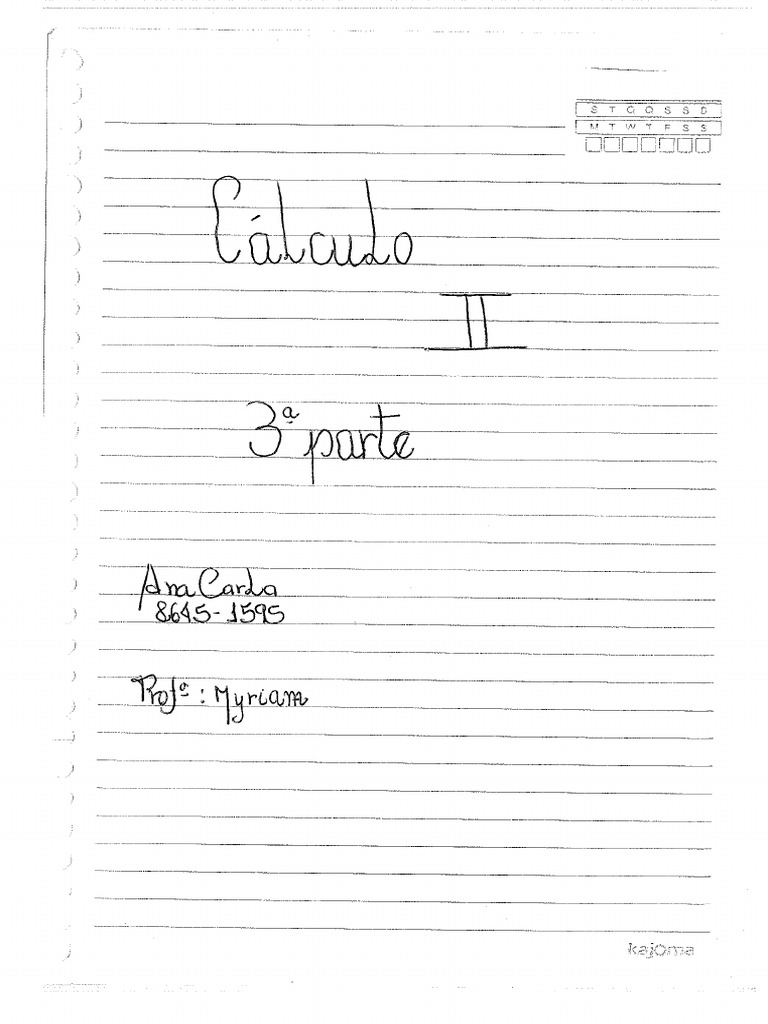 S T Q Q S S D
M T W T F S S
Cálculo
II
3ª parte
Ana Carla
8645-1595
Profª: Myriam
kajoma